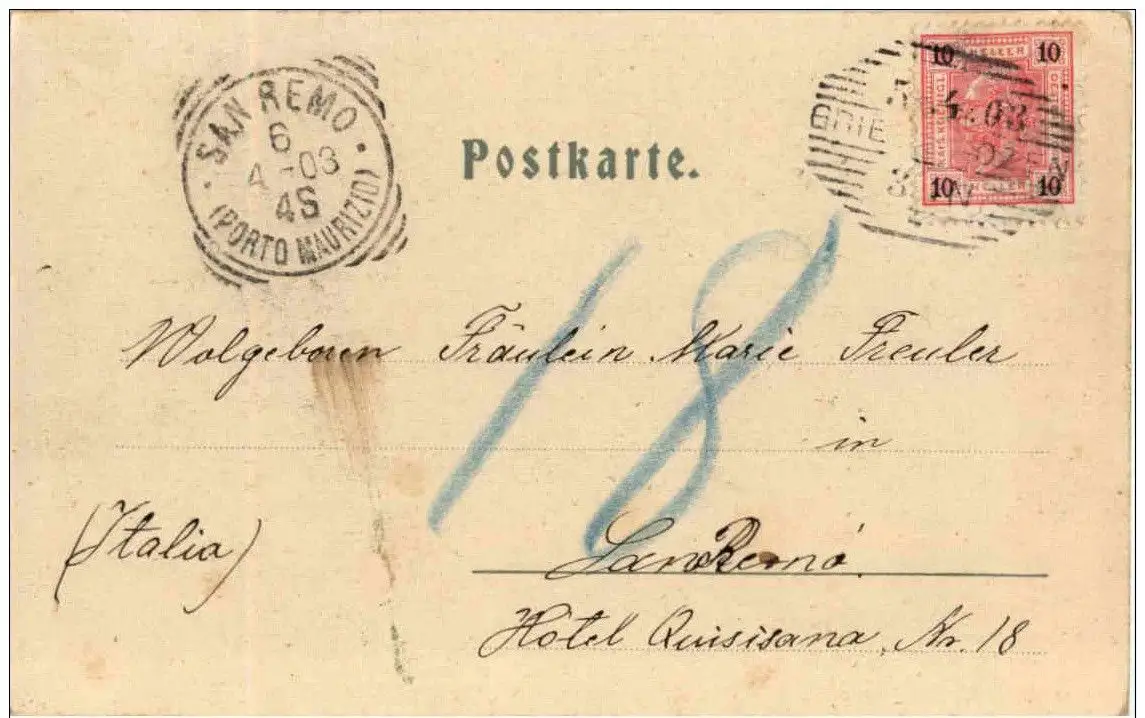 SAN REMO
6
4 -03
4S
(PORTO MAURIZIO)
Postkarte.
10 HELLER 10
BRIE
4. 03
10 HELLER 10
18
Wolgeboren Fräulein Marie Freuler
in
(Italia)
San Remó.
Hôtel Quisisana, Nr. 18